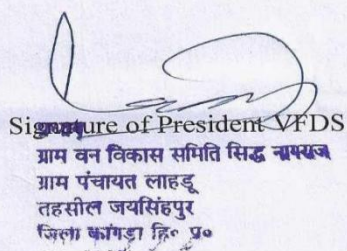 Signature of President VFDS
ग्राम वन विकास समिति सिद्ध नागराज
ग्राम पंचायत लाहडू
तहसील जयसिंहपुर
जिला कांगड़ा हि० प्र०